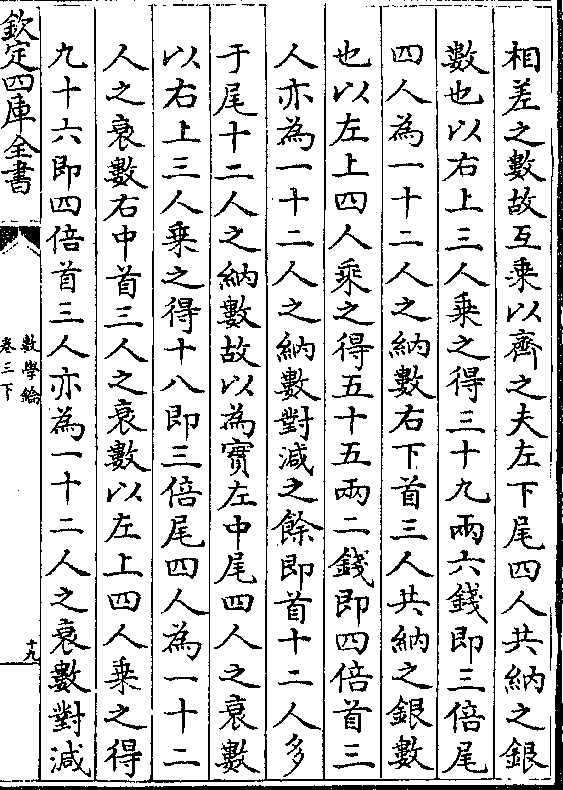 相差之數故互乘以齊之夫左下尾四人共納之銀
數也以右上三人乘之得三十九兩六錢即三倍尾
四人為一十二人之納數右下首三人共納之銀數
也以左上四人乘之得五十五兩二錢即四倍首三
人亦為一十二人之納數對減之餘即首十二人多
于尾十二人之納數故以為實左中尾四人之衰數
以右上三人乘之得十八即三倍尾四人為一十二
人之衰數右中首三人之衰數以左上四人乘之得
九十六即四倍首三人亦為一十二人之衰數對減
欽定四庫全書
數學鑰
卷三下
十九